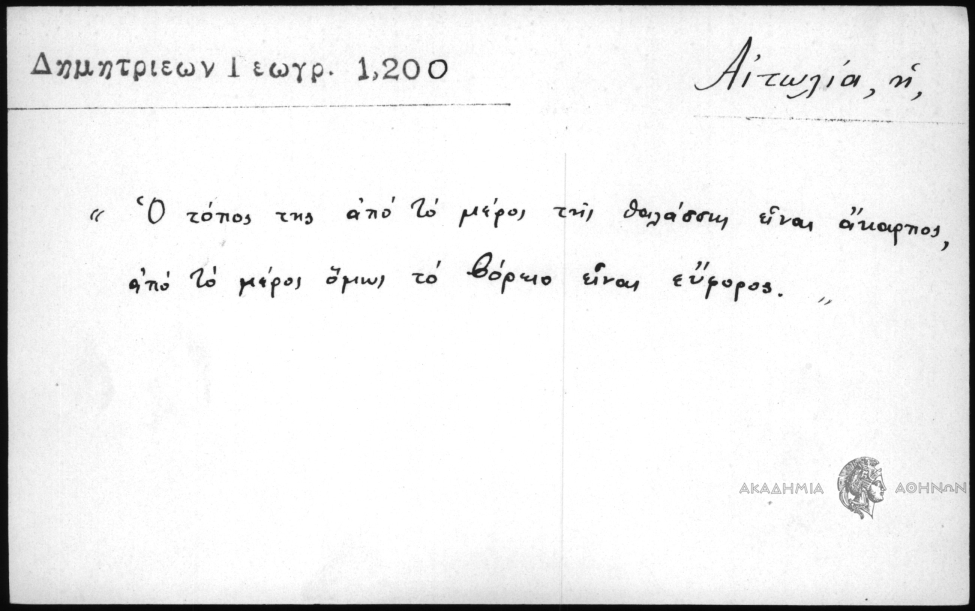 Δημητριεων Γεωγρ. 1,200
Αἰτωλία, ἡ,
“ Ὁ τόπος της ἀπό τό μέρος τῆς θαλάσσης εἶναι ἄκαρπος,
ἀπό τό μέρος ὅμως τό βόρειο εἶναι εὔφορος. „
ΑΚΑΔΗΜΙΑ ΑΘΗΝΩΝ